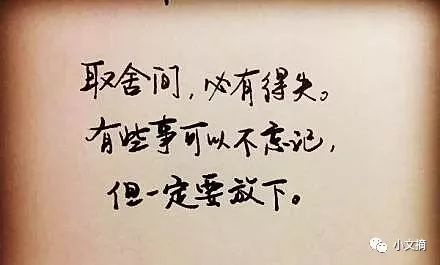 取舍间，必有得失。
有些事可以不忘记，
但一定要放下。
小文摘